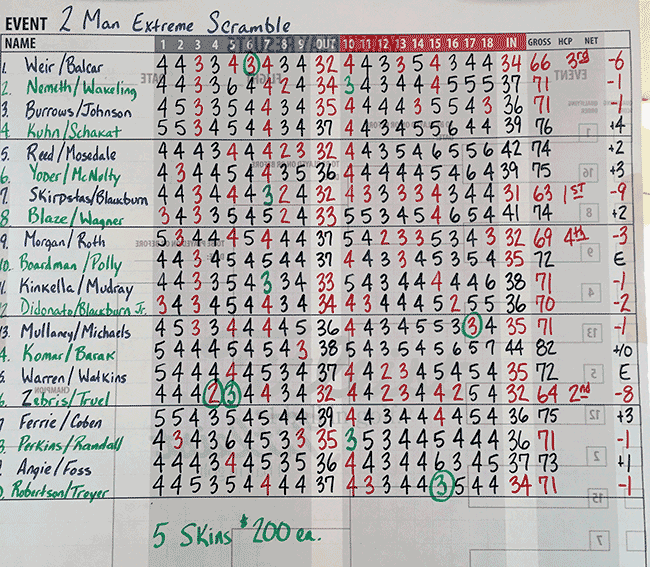 EVENT 2 Man Extreme Scramble
NAME 1 2 3 4 5 6 7 8 9 OUT 10 11 12 13 14 15 16 17 18 IN GROSS HCP NET
1. Weir/Balcar 4 4 3 3 4 3 4 3 4 32 4 4 3 3 5 4 3 4 4 34 66 3rd -6
2. Nemeth/Wakeling 4 4 3 3 6 4 4 2 4 34 3 4 3 4 4 4 5 5 5 37 71 -1
3. Burrows/Johnson 4 5 3 3 5 4 4 3 4 35 4 4 4 4 3 5 5 4 3 36 71 -1
4 Kuhn/Schakat 5 5 3 4 5 4 4 3 4 37 4 4 3 4 5 5 6 4 4 39 76 +4
5. Reed/Mosedale 4 4 4 3 4 4 4 2 3 32 4 4 3 5 4 6 5 5 6 42 74 +2
6. Yoder/McNolty 4 3 4 4 5 4 4 3 5 36 4 4 4 4 4 5 4 6 4 39 75 +3
7. Skirpstas/Blackburn 4 4 3 4 4 4 3 2 4 32 4 3 3 3 3 4 3 4 4 31 63 1st -9
8 Blaze/Wagner 3 4 3 3 5 4 5 2 4 33 5 5 3 4 5 4 6 5 4 41 74 +2
9. Morgan/Roth 5 3 4 4 4 5 4 4 4 37 5 4 2 3 3 5 3 4 3 32 69 4th -3
10. Boardman/Polly 4 4 3 4 5 4 5 4 4 37 4 4 3 3 4 5 3 5 4 35 72 E
11. Kinkella/Mudray 4 4 3 3 5 4 3 3 4 33 5 4 3 4 4 4 4 4 6 38 71 -1
12 Didonato/Blackburn Jr. 3 4 3 4 5 4 4 3 4 34 4 3 4 4 4 5 2 5 5 36 70 -2
13. Mullaney/Michaels 4 5 3 3 4 4 4 4 5 36 4 4 3 4 5 5 3 3 4 35 71 -1
4. Komar/Barak 5 4 4 4 5 4 5 4 3 38 5 4 3 5 4 5 6 5 7 44 82 +10
5. Warren/Watkins 5 4 4 4 4 4 5 3 4 37 4 4 2 3 4 5 4 5 4 35 72 E
6. Zebris/Truel 4 4 4 2 3 4 4 3 4 32 4 4 2 3 4 4 2 5 4 32 64 2nd -8
7 Ferrie/Coben 5 5 4 3 5 4 5 4 4 39 4 4 3 4 4 4 4 5 4 36 75 +3
8. Perkins/Randall 4 3 4 3 6 4 5 3 3 35 3 5 3 4 4 5 4 4 4 36 71 -1
Angie/Foss 4 4 4 3 4 4 5 3 5 36 4 4 3 4 4 6 3 4 5 37 73 +1
Robertson/Troyer 4 4 5 3 5 4 4 4 4 37 4 3 3 4 4 3 5 4 4 34 71 -1
5 Skins $200 ea.